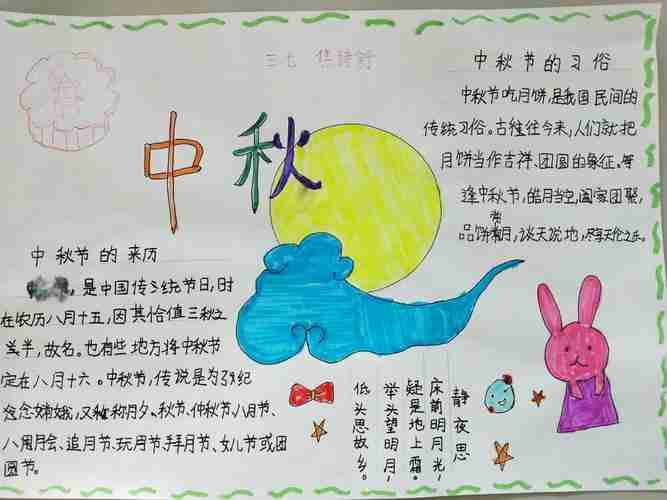 三七
中秋
中秋节的习俗
中秋节吃月饼,是我国民间的
传统习俗。古往今来,人们就把
月饼当作吉祥、团圆的象征。每
逢中秋节,皓月当空,阖家团聚,
品饼赏月,谈天说地,尽享天伦之乐。
中秋节的来历
,是中国传统节日,时
在农历八月十五,因其恰值三秋之
半,故名。也有些地方将中秋节
定在八月十六。中秋节,传说是为了纪
念嫦娥,又称月夕、秋节、仲秋节、八月节、
八月会、追月节、玩月节、拜月节、女儿节或团
圆节。
静夜思
床前明月光,
疑是地上霜。
举头望明月,
低头思故乡。